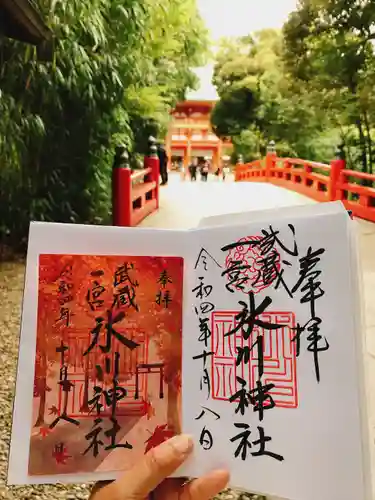 奉拝
武蔵
一宮
氷川神社
令和四年十一月八日
奉拝
武蔵
一宮
氷川神社
令和四年十一月八日